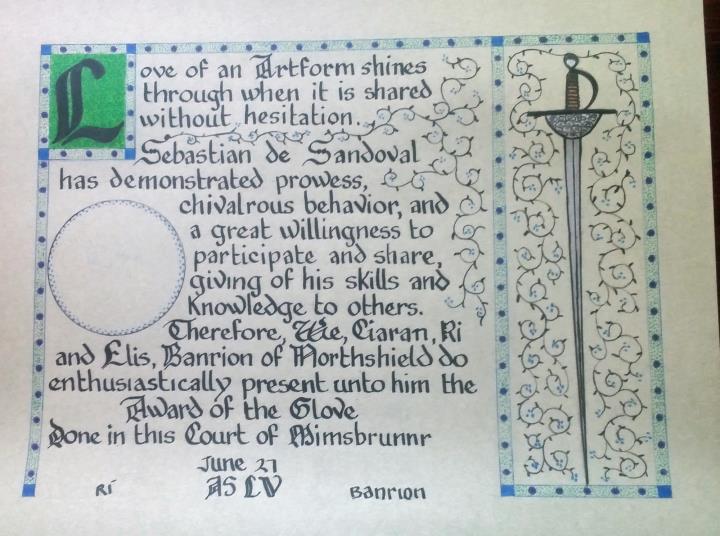 Love of an Artform shines
through when it is shared
without hesitation.
Sebastian de Sandoval
has demonstrated prowess,
chivalrous behavior, and
a great willingness to
participate and share,
giving of his skills and
knowledge to others.
Therefore, We, Ciaran, Ri
and Elis, Banrion of Northshield do
enthusiastically present unto him the
Award of the Glove
Done in this Court of Mimsbrunnr
June 27
Rí AS LV Banrion